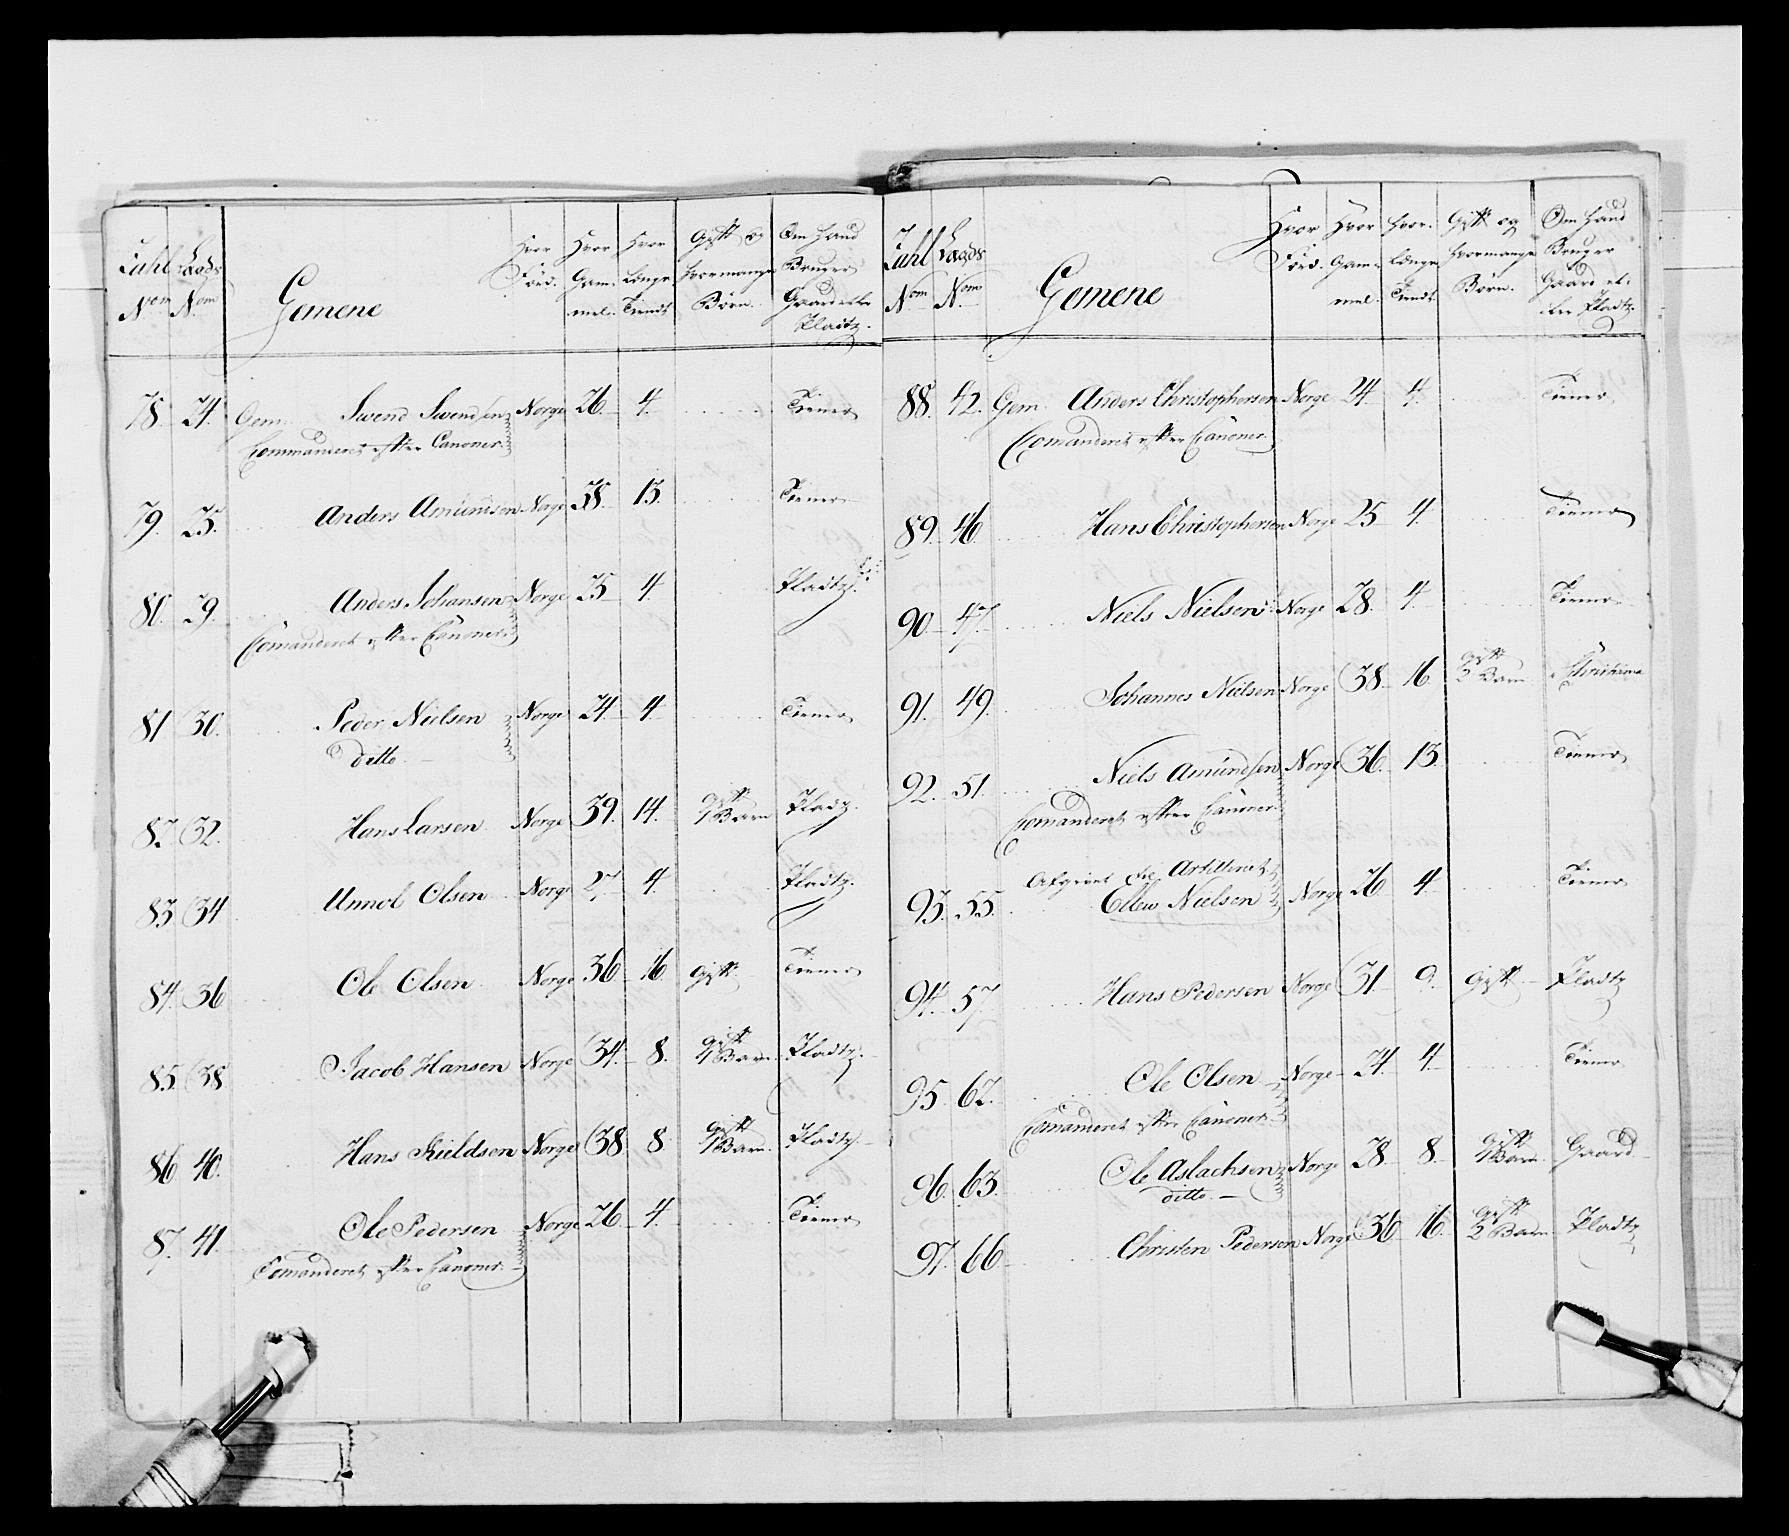 Zahl Laads Gemene Hvor Hvor Hvor Gift og Om Hand
Nom Nom Föed. Gam- Længe hvormange Bruger
mel. Tient Börn. Gaard eller
Pladtz.
78. 24. Gem: Swend Swendsen Norge 26. 4. Tiener
Commanderet efter Canoner.
79. 25. Anders Amundsen Norge 38. 13. Tiener
80. 29. Anders Johansen Norge 25 4 Pladtz.
Comanderet efter Canoner.
81 30. Peder Nielsen Norge 24. 4 Tiener
ditto.
82. 32. Hans Larsen Norge 39. 14. gift 1 Barn Pladz.
83. 34 Unnol Olsen Norge 27 4. Pladtz.
84. 36 Ole Olsen Norge 36 16. Gift Tiener
85. 38 Jacob Hansen Norge 34. 8. gift 1 Barn Pladtz.
86 40. Hans Kieldsen Norge 38 8 gift 1 Barn. Pladtz.
87. 41. Ole Pedersen Norge 26 4. Tiener
Comanderet efter Canoner.
Zahl Laads Gemene Hvor Hvor Hvor Gift og Om Hand
Nom Nom Föed. Gam- Længe hvormange Bruger
mel. Tient Börn. Gaard el-
ler Pladtz.
88. 42. Gem. Anders Christophersen Norge 24 4. Tiener
Comanderet efter Canoner.
89. 46. Hans Christophersen Norge 25 4. Tiener
90. 47. Niels Nielsen Norge 28. 4. Tiener
91. 49. Johannes Nielsen Norge 38. 16 gift 2 Barn
92. 51. Niels Amundsen Norge 36. 13. Tiener
Comanderet efter Canoner.
Afgivet til Artilleriet
93. 55. Ellew Nielsen Norge 26 4 Tiener
94. 57. Hans Pedersen Norge 31 9. Gift Pladtz
95. 62. Ole Olsen Norge 24. 4 Tiener
Comanderet efter Canoner.
96. 63. Ole Aslachsen Norge 28. 8. gift 1 Barn. Gaard
ditto.
97. 66 Christen Pedersen Norge 36 16. gift 2 Barn Pladtz